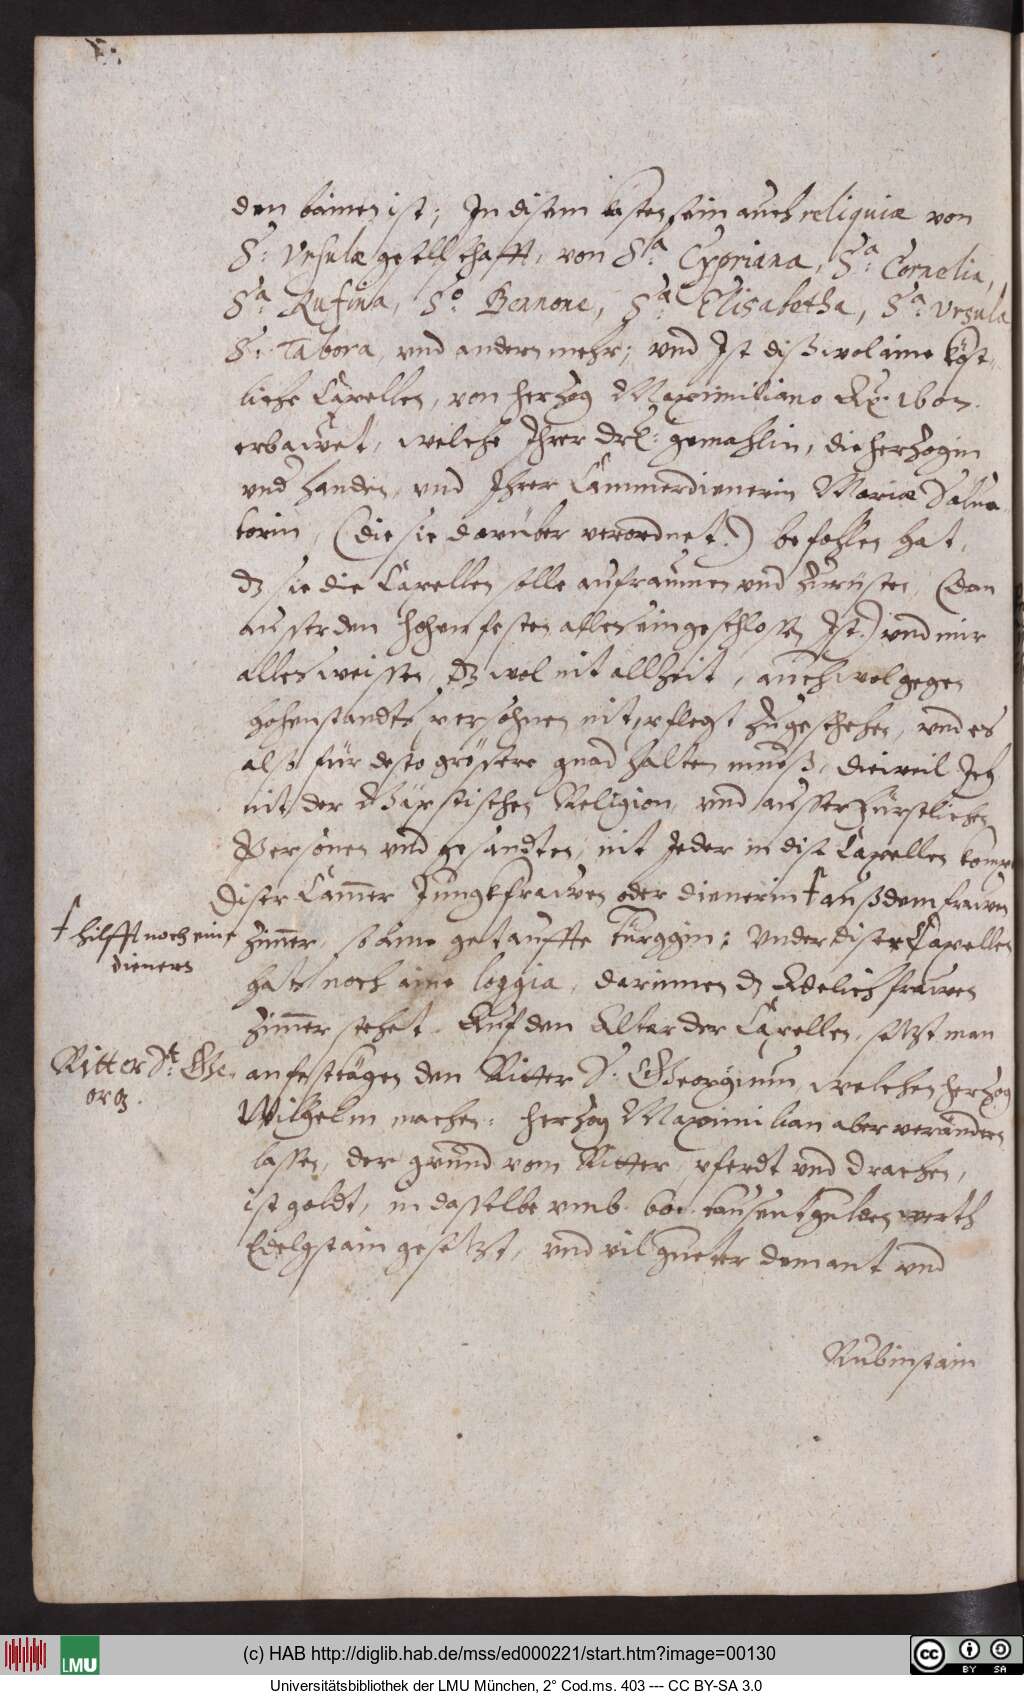 den bainen ist; In disem kasten sein auch reliquiæ von
S: Vrsulæ gesellschafft, von Sa: Cypriana, Sa: Cornelia,
Sa: Rufina, So: Bennone, Sa: Elisabetha, Sa: Vrsula
S: Tabora, vnd andern mehr; vnd Ist diß wol aine köst-
liche Capellen, von herzog Maximiliano Ao. 1607.
erbawet, welche Ihrer Drl: gemahlin, die herzogin
vnd handen, vnd Ihrer Cammerdienerin Mariæ Salua-
torin, (die sie darüber verordnet.) befohlen hat,
dz sie die Capellen solle aufraumen vnd zurüsten, (dan
ausser den hohen festen alles eingeschlossen Ist.) vnd mir
alles weissen, dz wol nit allzeit, auch wol gegen
hohenstandts persohnen nit pflegt zugeschehen, vnd es
also für desto grössere gnad halten muoß, dieweil Ich
nit der Bäpstischen Religion, vnd ausser Fürstlichen
Personen vnd gesandten, nit Jeder in dise Capellen kompt
Diser Cammer Jungkfrawen oder dienerin † auß dem frawen
† hilfft noch eine
dieners
Zimmer, so eine getauffte Türggin; Vnder diser Capellen
hats noch aine loggia, darinnen dz Adelich frawen
Zimmer stehet. Auf den Altar der Capellen, setzt man
Ritter St: Ge-
org.
an festtägen den Ritter S. Georgium, welchen herzog
Wilhelm machen: herzog Maximilian aber verändern
lassen, der grund vom Ritter, pferdt vnd drachen,
ist goldt, in dasselbe vmb. tausent gulden werth
Edelgstain gesetzt, vnd vil gueter demant vnd
Rubinstain
(c) HAB http://diglib.hab.de/mss/ed000221/start.htm?image=00130
LMU
cc BY SA
Universitätsbibliothek der LMU München, 2° Cod.ms. 403 --- CC BY-SA 3.0